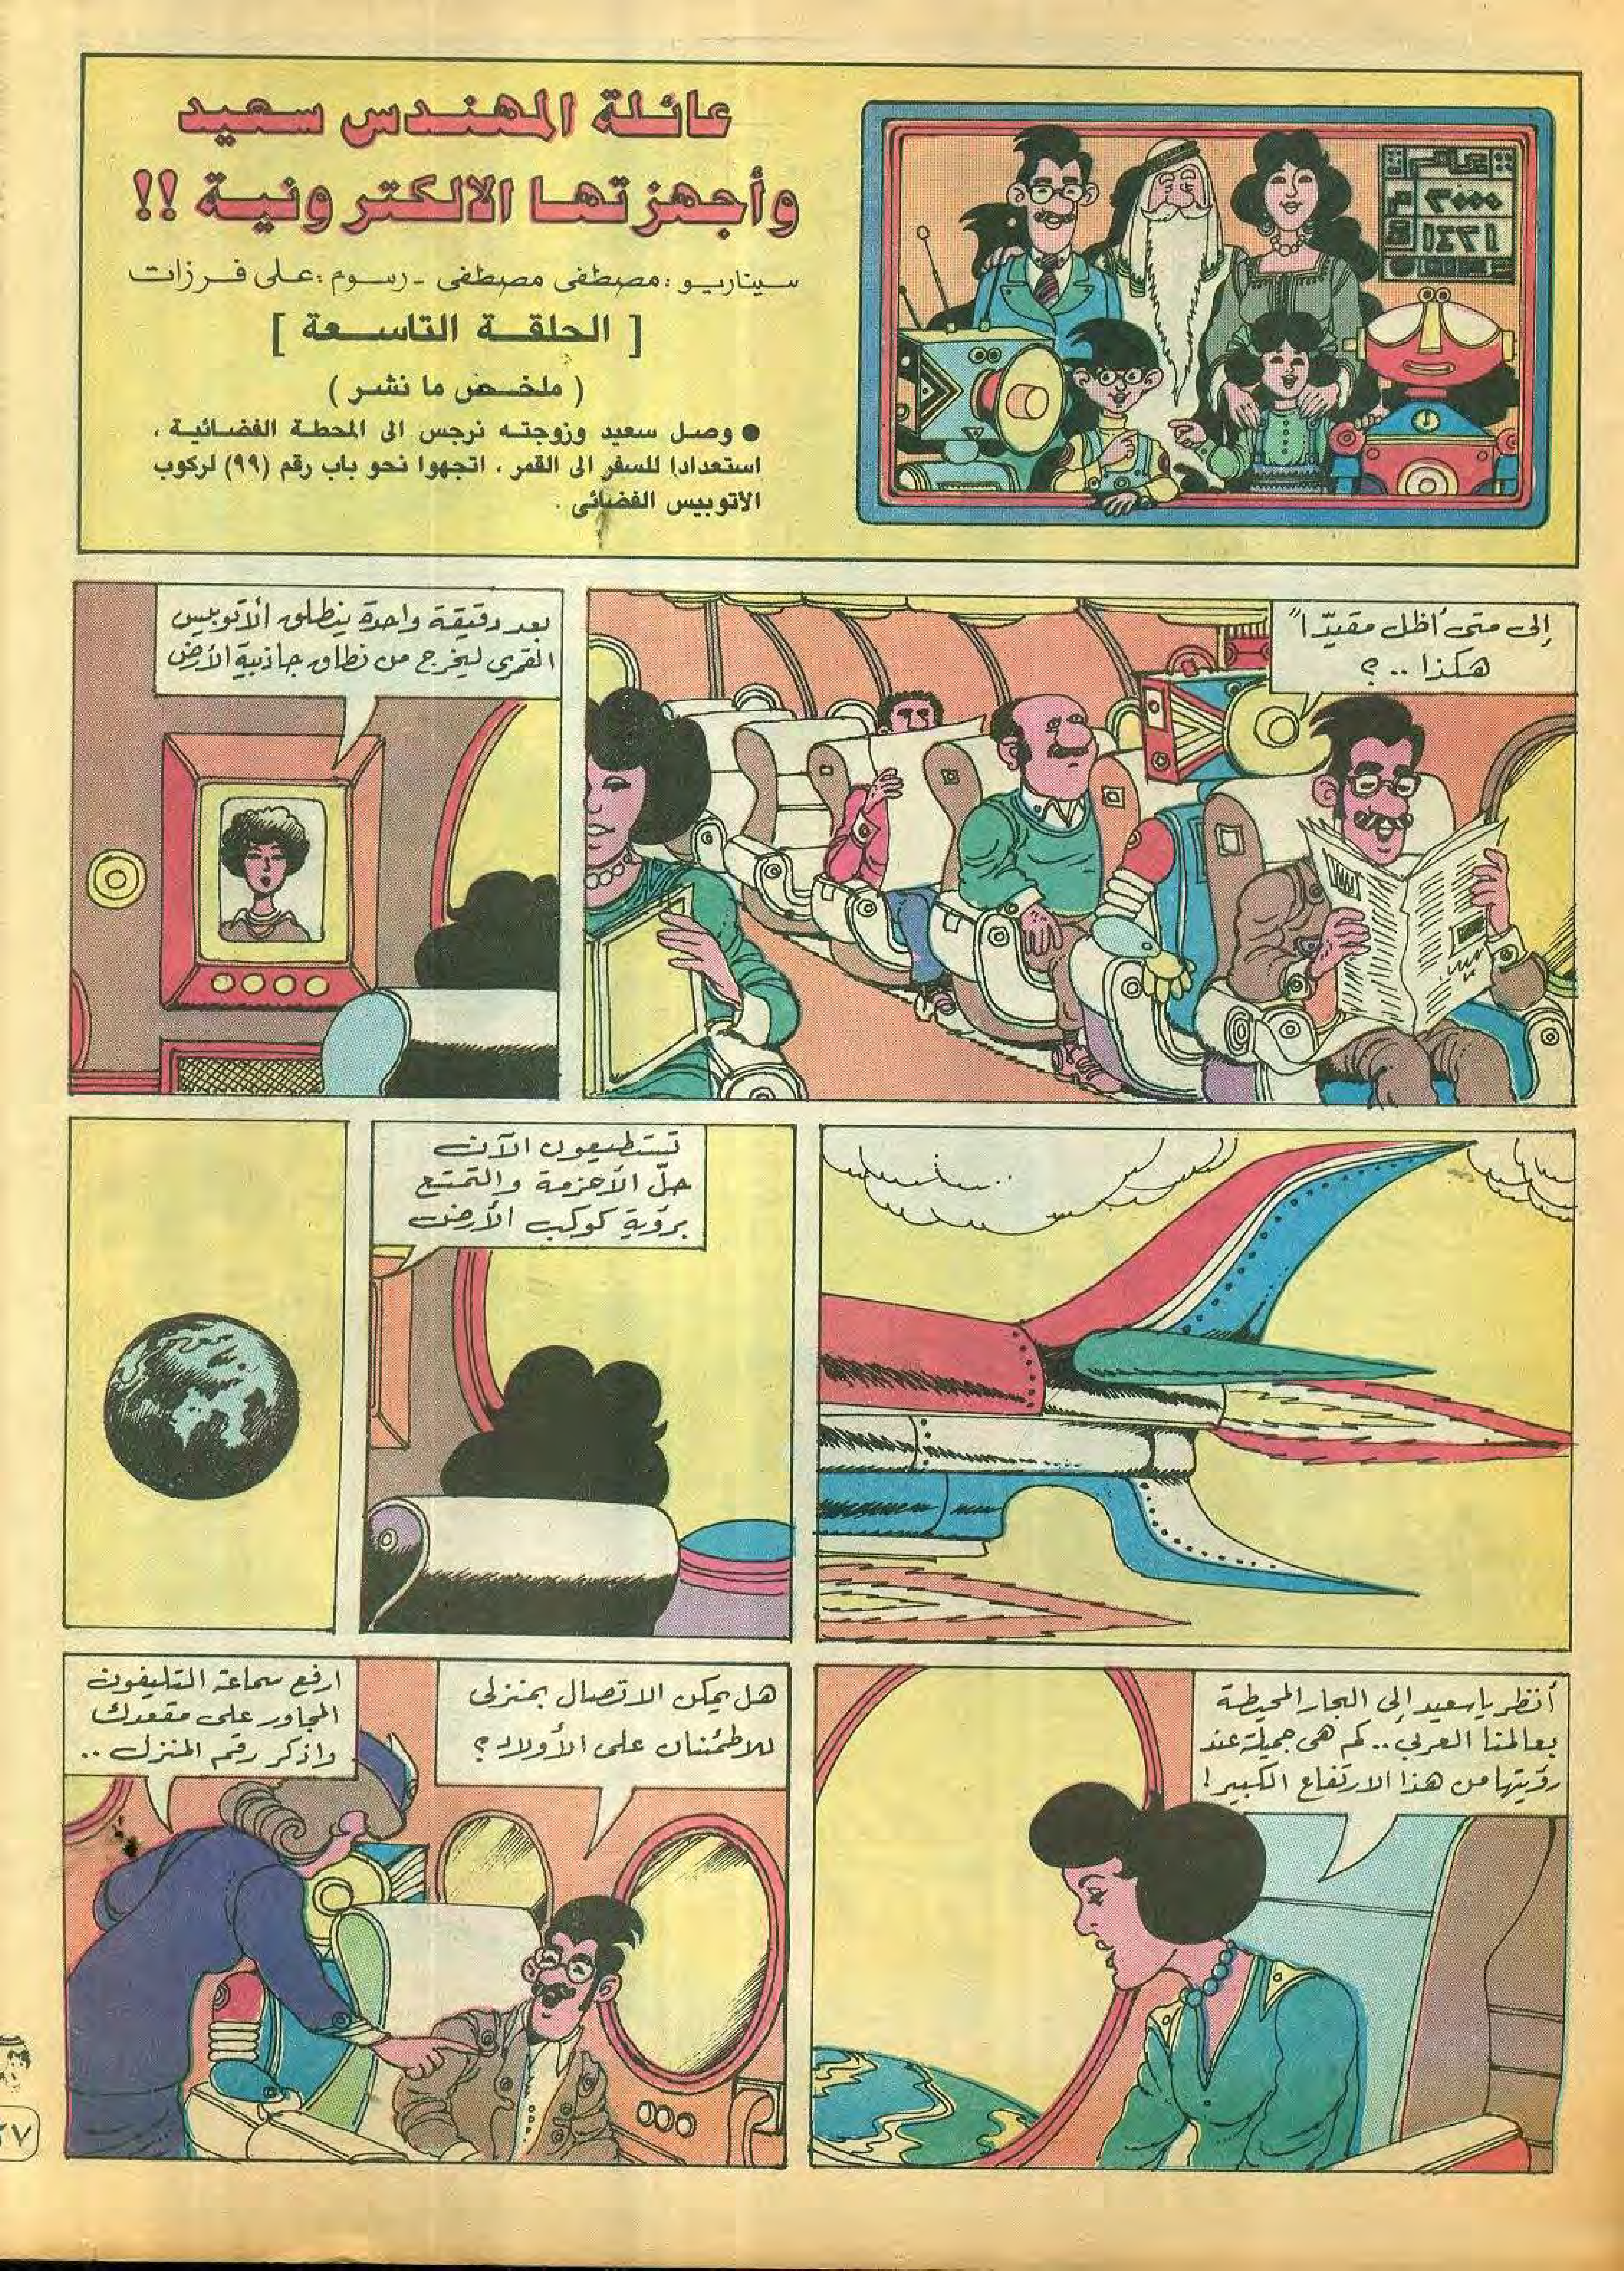 عائلة المهندس سعيد
وأجهزتها الالكترونية !!
سيناريو : مصطفى مصطفى - رسوم : على فرزات
[ الحلقة التاسعة ]
( ملخص ما نشر )
● وصل سعيد وزوجته نرجس الى المحطة الفضائية ،
استعدادا للسفر الى القمر ، اتجهوا نحو باب رقم (٩٩) لركوب
الأتوبيس الفضائى .
عام
٢٠٠٠ م
١٤٢١
إلى متى أظل مقيّداً
هكذا ..؟
بعد دقيقة واحدة ينطلق الأتوبيس
القمرى ليخرج من نطاق جاذبية الأرض
تستطيعون الآن
حلّ الأحزمة والتمتع
برؤية كوكب الأرض
أنظر يا سعيد إلى البحار المحيطة
بعالمنا العربي .. كم هى جميلة عند
رؤيتها من هذا الارتفاع الكبير !
هل يمكن الاتصال بمنزلى
للاطمئنان على الأولاد ؟
ارفع سماعة التليفون
المجاور على مقعدك
واذكر رقم المنزل ..